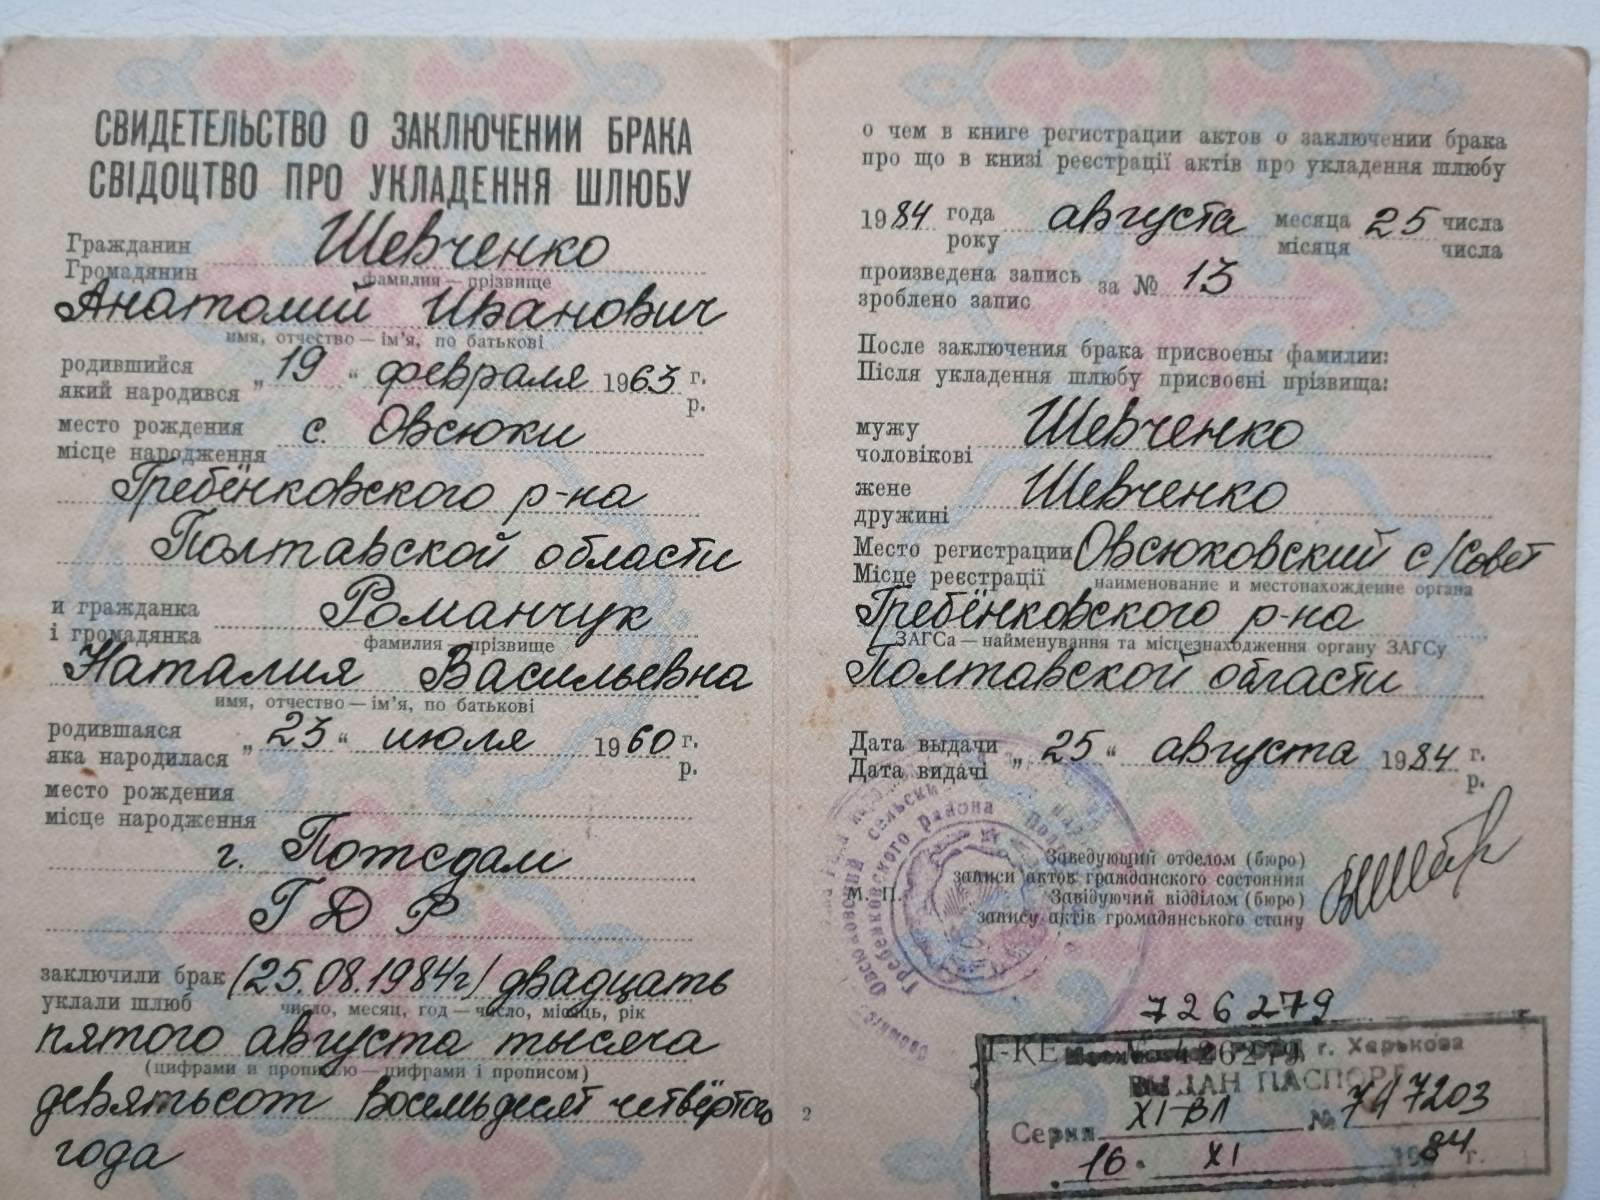 СВИДЕТЕЛЬСТВО О ЗАКЛЮЧЕНИИ БРАКА
СВІДОЦТВО ПРО УКЛАДЕННЯ ШЛЮБУ
Гражданин Шевченко
Громадянин
фамилия — прізвище
Анатолий Иванович
имя, отчество — ім'я, по батькові
родившийся „ 19 “ февраля 1963 г.
який народився р.
место рождения с. Овсюки
місце народження
Гребёнковского р-на
Полтавской области
и гражданка Романчук
і громадянка фамилия прізвище
Наталия Васильевна
имя, отчество — ім'я, по батькові
родившаяся „ 23 “ июля 1960 г.
яка народилася р.
место рождения
місце народження
г. Потсдам
ГДР
заключили брак (25.08.1984г) двадцать
уклали шлюб число, месяц, год — число, місяць, рік
пятого августа тысяча
(цифрами и прописью — цифрами і прописом)
девятьсот восемьдесят четвёртого
года
о чем в книге регистрации актов о заключении брака
про що в книзі реєстрації актів про укладення шлюбу
1984 года августа месяца 25 числа
року місяця числа
произведена запись за № 13
зроблено запис
После заключения брака присвоены фамилии:
Після укладення шлюбу присвоєні прізвища:
мужу Шевченко
чоловікові
жене Шевченко
дружині
Место регистрации Овсюковский с/Совет
Місце реєстрації наименование и местонахождение органа
Гребёнковского р-на
ЗАГСа — найменування та місцезнаходження органу ЗАГСу
Полтавской области
Дата выдачи „ 25 “ августа 1984 г.
Дата видачі р.
Заведующий отделом (бюро)
записи актов гражданского состояния
М. П. Завідуючий відділом (бюро)
запису актів громадянського стану
Овсюковский сельский
Гребенковского района
726279
I-КЕ
г. Харькова
ВЫДАН ПАСПОРТ
Серия XI-ВЛ № 747203
16. XI 1984 г.
2